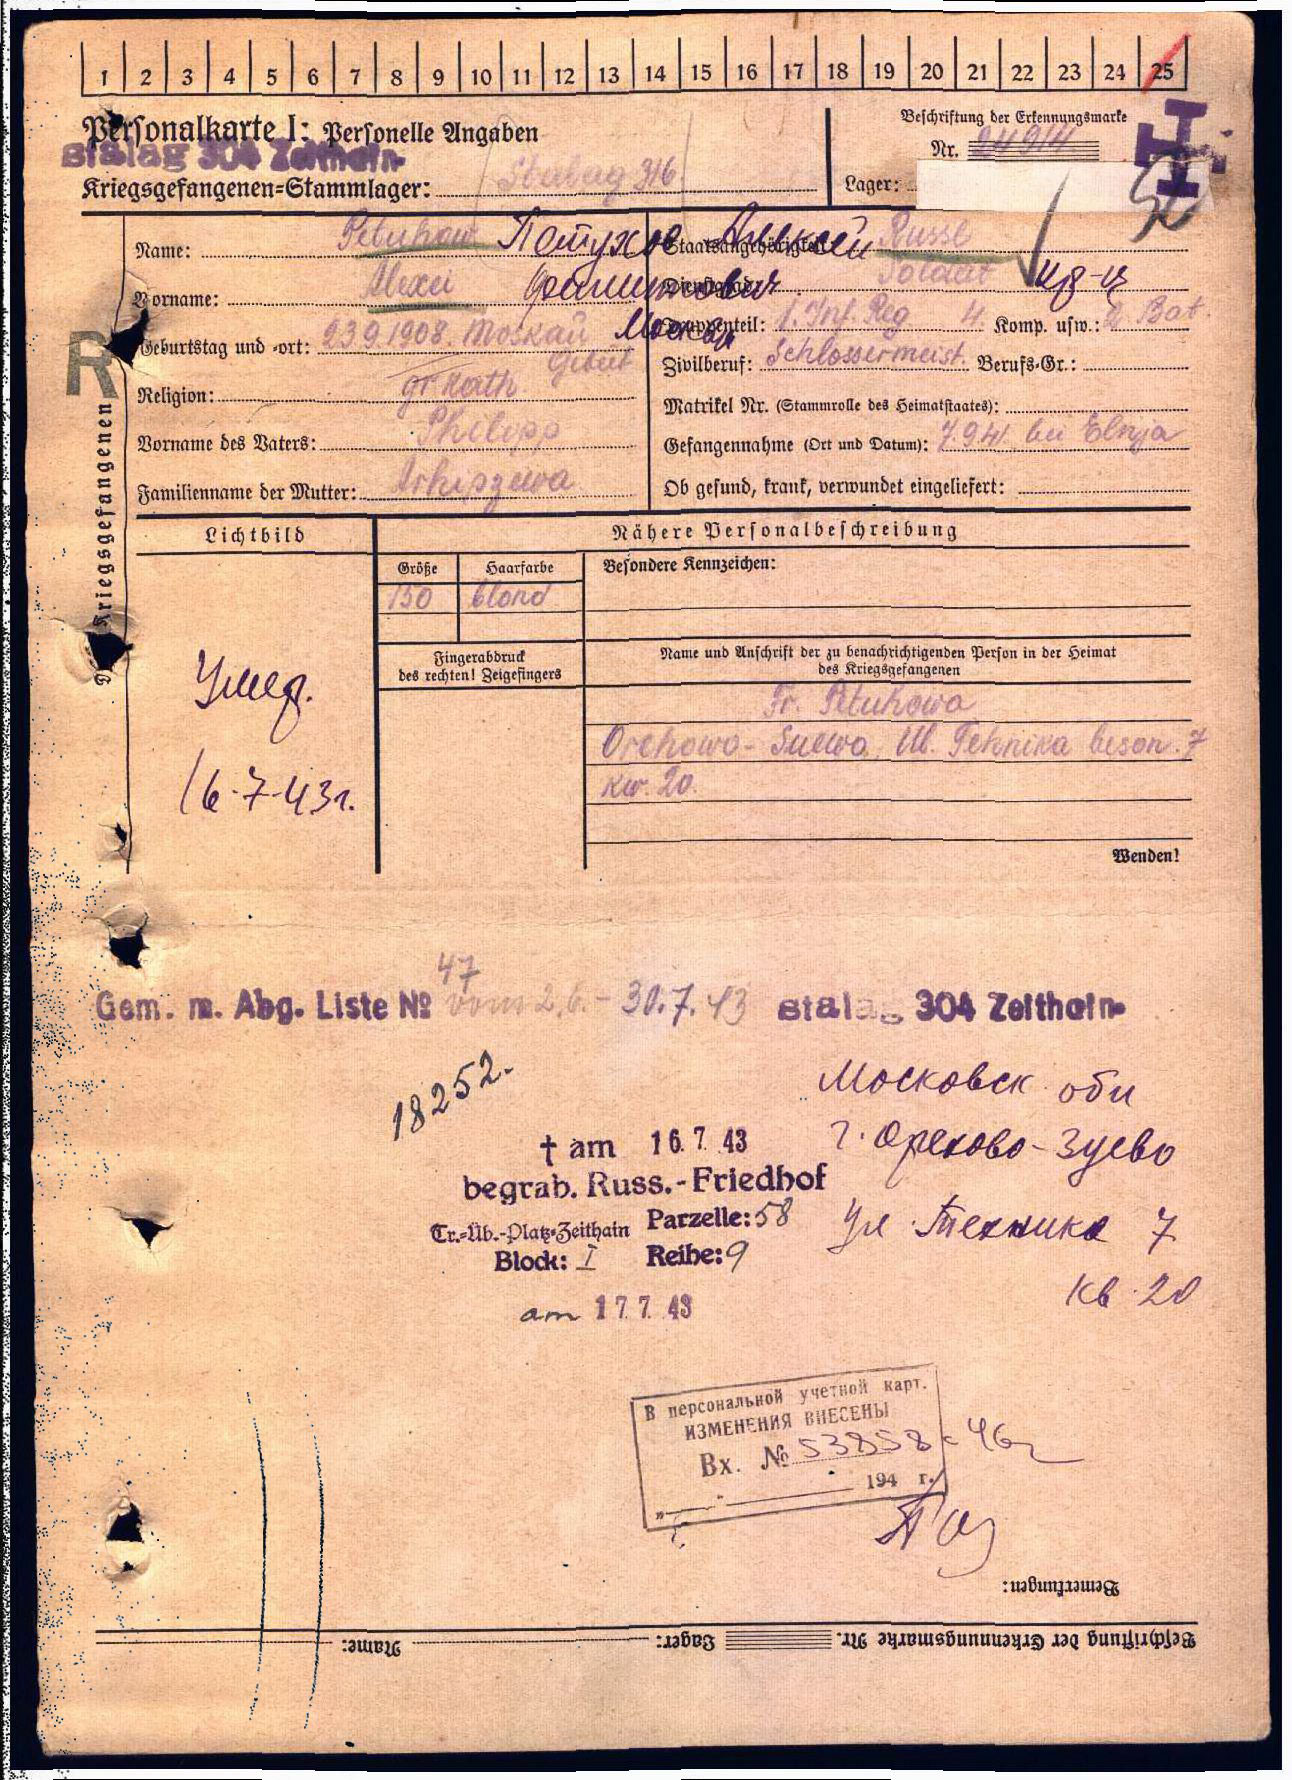 1 2 3 4 5 6 7 8 9 10 11 12 13 14 15 16 17 18 19 20 21 22 23 24 25
Personalkarte I: Personelle Angaben
Beschriftung der Erkennungsmarke
Stalag 304 Zeithain
Nr. 24914
Kriegsgefangenen=Stammlager: Stalag 316
Lager:
Name: Petuhow Петухов Алексей
Staatsangehörigkeit: Russl
Vorname: Alexei Филиппович
Dienstgrad: Soldat кр-ц
Geburtstag und =ort: 23.9.1908. Moskau Москва
Gebiet
Truppenteil: 1. Inf. Reg 4. Komp. usw.: 2. Bat.
Zivilberuf: Schlossermeist. Berufs=Gr.:
Religion: gr. Kath
Matrikel Nr. (Stammrolle des Heimatstaates):
Vorname des Vaters: Philipp
Gefangennahme (Ort und Datum): 7.9.41. bei Elnja
Familienname der Mutter: Arhipzewa
Ob gesund, krank, verwundet eingeliefert:
R
Kriegsgefangenen
Lichtbild
Nähere Personalbeschreibung
Größe Haarfarbe
Besondere Kennzeichen:
150 blond
Fingerabdruck
des rechten! Zeigefingers
Name und Anschrift der zu benachrichtigenden Person in der Heimat
des Kriegsgefangenen
Умер.
16-7-43г.
Fr. Petuhowa
Orehowo-Suewo, Ul. Tehnika beson. 7
kw. 20.
Wenden!
47
Gem. m. Abg. Liste № vom 2.6.- 30.7.43 Stalag 304 Zeithain
18252.
Московск обл
г. Орехово-Зуево
ул. Техника 7
кв. 20
† am 16.7.43
begrab. Russ.-Friedhof
Tr.=Üb.=Platz=Zeithain Parzelle: 58
Block: I Reihe: 9
am 17.7.43
В персональной учетной карт.
ИЗМЕНЕНИЯ ВНЕСЕНЫ
Вх. № 53858с 46г
194 г.
Bemerkungen:
Beschriftung der Erkennungsmarke Nr. Lager: Name: